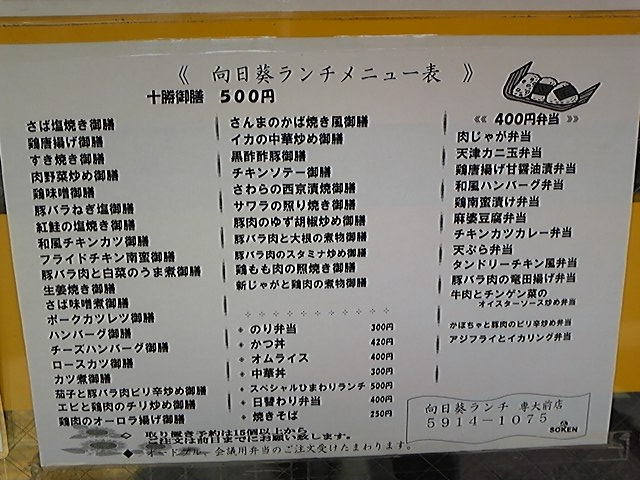 《 向日葵ランチメニュー表 》
十勝御膳 500円
さば塩焼き御膳
鶏唐揚げ御膳
すき焼き御膳
肉野菜炒め御膳
鶏味噌御膳
豚バラねぎ塩御膳
紅鮭の塩焼き御膳
和風チキンカツ御膳
フライドチキン南蛮御膳
豚バラ肉と白菜のうま煮御膳
生姜焼き御膳
さば味噌煮御膳
ポークカツレツ御膳
ハンバーグ御膳
チーズハンバーグ御膳
ロースカツ御膳
カツ煮御膳
茄子と豚バラ肉ピリ辛炒め御膳
エビと鶏肉のチリ炒め御膳
鶏肉のオーロラ揚げ御膳
さんまのかば焼き風御膳
イカの中華炒め御膳
黒酢酢豚御膳
チキンソテー御膳
さわらの西京漬焼御膳
サワラの照り焼き御膳
豚肉のゆず胡椒炒め御膳
豚バラ肉と大根の煮物御膳
豚バラ肉のスタミナ炒め御膳
鶏もも肉の照焼き御膳
新じゃがと鶏肉の煮物御膳
のり弁当 300円
かつ丼 420円
オムライス 400円
中華丼 300円
スペシャルひまわりランチ 500円
日替わり弁当 400円
焼きそば 250円
≪ 400円弁当 ≫
肉じゃが弁当
天津カニ玉弁当
鶏唐揚げ甘醤油漬弁当
和風ハンバーグ弁当
鶏南蛮漬け弁当
麻婆豆腐弁当
チキンカツカレー弁当
天ぷら弁当
タンドリーチキン風弁当
豚バラ肉の竜田揚げ弁当
牛肉とチンゲン菜の
オイスターソース炒め弁当
かぼちゃと豚肉のピリ辛炒め弁当
アジフライとイカリング弁当
向日葵ランチ 専大前店
5914-1075
SOKEN
予約は15個以上から
ご注文は前日までにお願い致します。
オードブル、会議用弁当のご注文受けたまわります。